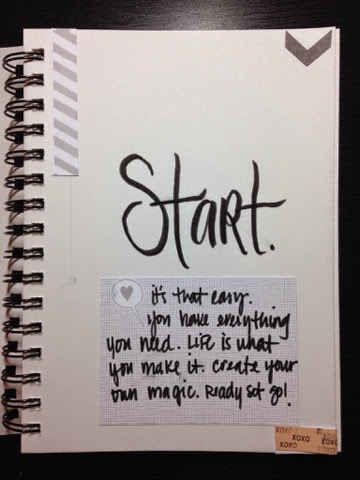 Start.
it's that easy.
you have everything
you need. Life is what
you make it. create your
own magic. Ready set go!
xoxo
xoxo